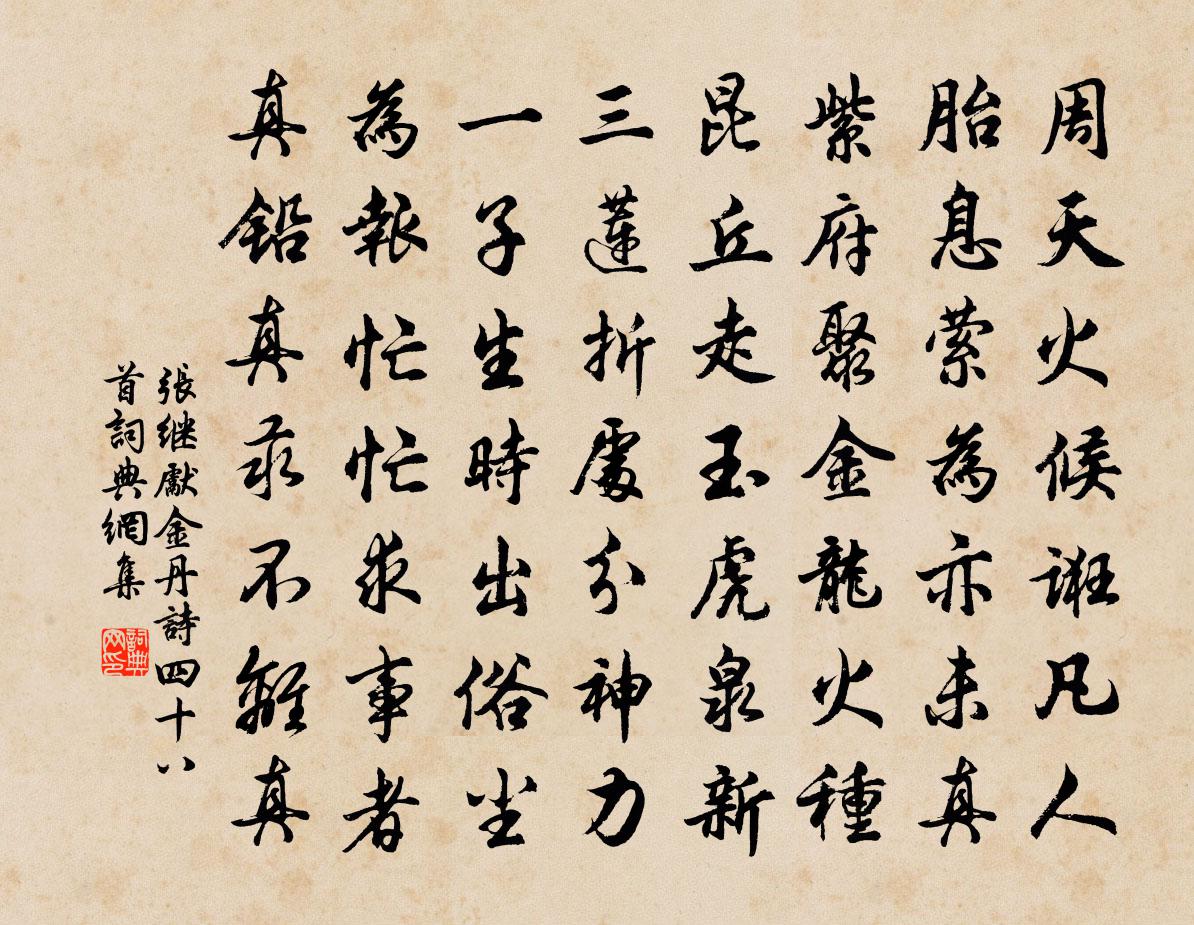 周天火候誑凡人
胎息萦為亦未真
紫府聚金龍火種
昆丘走玉虎泉新
三蓮折處分神力
一子生時出俗尘
為報忙忙求事者
真鉛真汞不離真
張继獻金丹詩四十八
首詞典網集
詞典网印